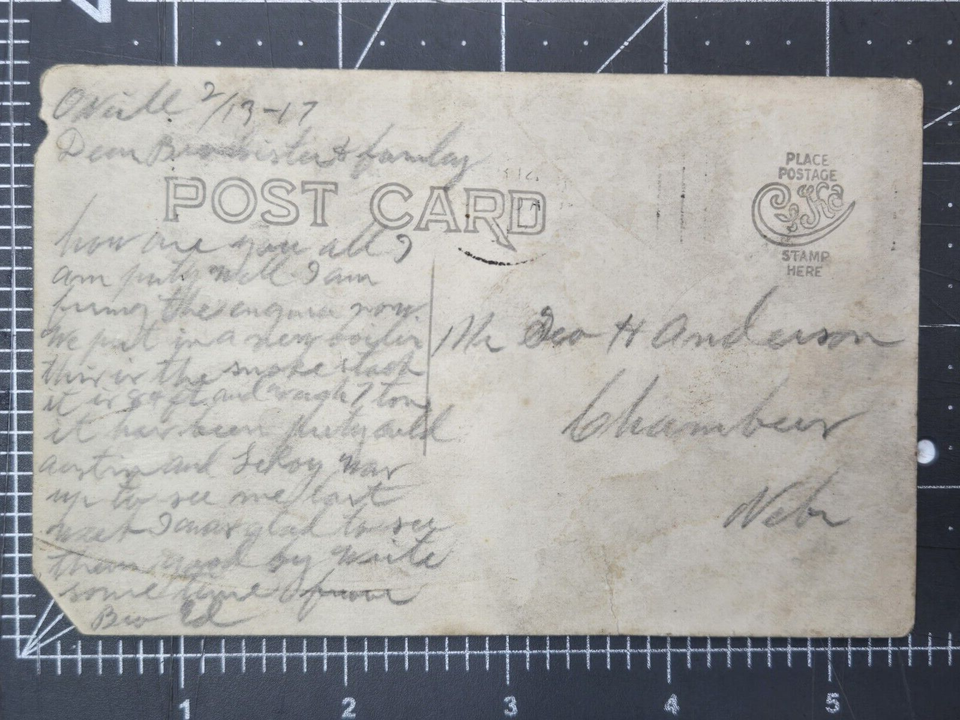 ONeill 2/13-17
Dear Bro sister & family
POST CARD
PLACE
POSTAGE
STAMP
HERE
how are you all I
am purty well I am
firing the engine now
we put in a new boiler
this is the smoke stack
it is 84 ft and weigh 7 tons
it has been purty cold
austin and LeRoy was
up to see me last
weet I was glad to see
them good by write
some time from
Bro Ed
Mr Geo H Anderson
Chambers
Nebr
1 2 3 4 5